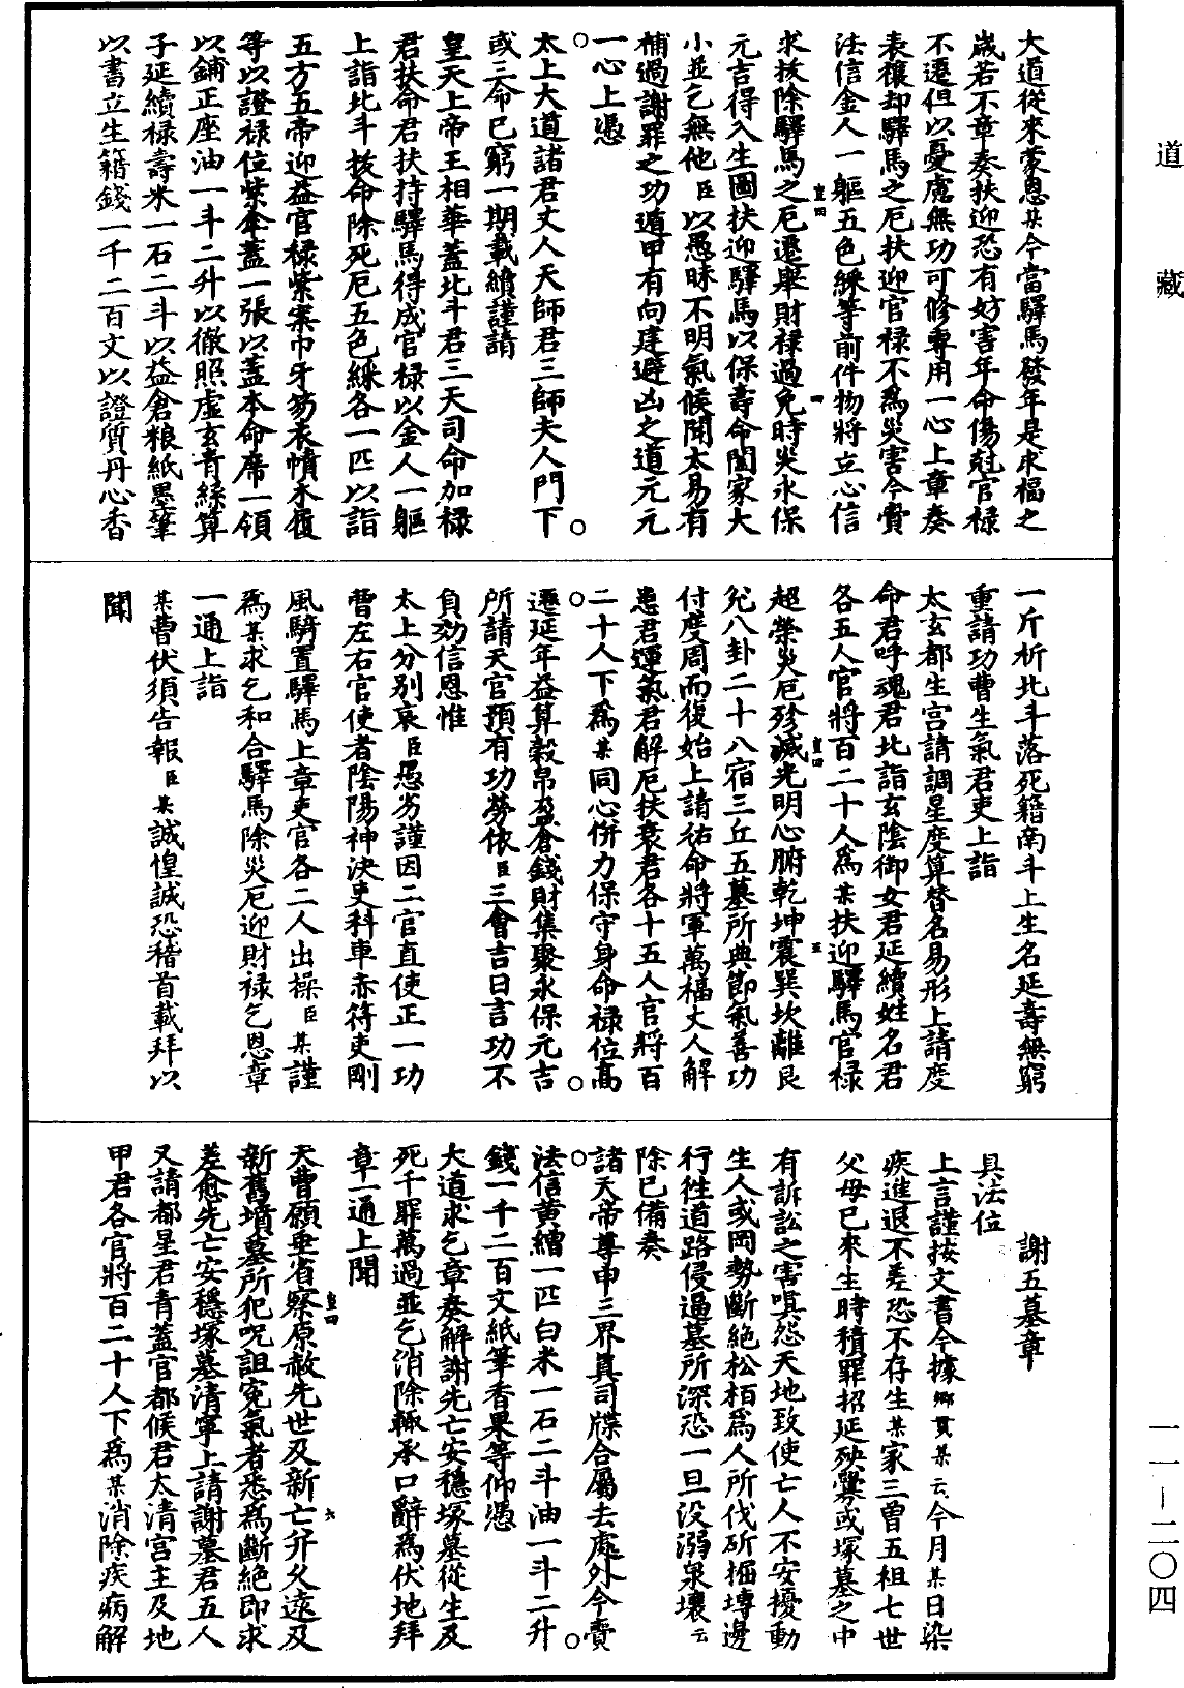 道藏
大道從來蒙恩某今當驛馬發年是求福之
歲若不章奏扶迎恐有妨害年命傷尅官禄
不遷但以憂慮無功可修專用一心上章奏
表禳却驛馬之厄扶迎官禄不為災害今賫
法信金人一軀五色綵等前件物將立心信
求拔除驛馬之厄遷舉財禄過免時災永保
元吉得入生圖扶迎驛馬以保壽命闔家大
小並乞無他臣以愚昧不明氣候開太易有
補過謝罪之功遁甲有向建避凶之道元元
一心上憑
太上大道諸君丈人天師君三師夫人門下
或三命已窮一期載續謹請
皇天上帝王相華蓋北斗君三天司命加禄
君扶命君扶持驛馬得成官禄以金人一軀
上詣北斗拔命除死厄五色綵各一匹以詣
五方五帝迎益官禄紫案巾牙笏衣幘木履
等以證禄位紫傘蓋一張以蓋本命席一領
以鋪正座油一斗二升以徹照虛玄青絲算
子延續禄壽米一石二斗以益倉粮紙墨筆
以書立生籍錢一千二百文以證質丹心香
一斤析北斗落死籍南斗上生名延壽無窮
重請功曹生氣君吏上詣
太玄都生宫請調星度算替名易形上請度
命君呼魂君北詣玄陰御女君延續姓名君
各五人官將百二十人為某扶迎驛馬官禄
超榮災厄殄滅光明心腑乾坤震巽坎離艮
兊八卦二十八宿三丘五墓所典節氣善功
付度周而復始上請祐命將軍萬福丈人解
患君運氣君解厄扶衰君各十五人官將百
二十人下為某同心併力保守身命禄位高
遷延年益算穀帛盈倉錢財集聚永保元吉
所請天官預有功勞依臣三會吉日言功不
負効信恩惟
太上分别哀臣愚劣謹因二官直使正一功
曹左右官使者陰陽神决吏科車赤符吏剛
風騎置驛馬上章吏官各二人出操臣某謹
為某求乞和合驛馬除災厄迎財禄乞恩章
一通上詣
某曹伏須告報臣某誠惶誠恐稽首載拜以
聞
謝五墓章
具法位
上言謹按文書今據鄉貫某云今月某日染
疾進退不差恐不存生某家三曾五祖七世
父母已來生時積罪招延殃釁或塚墓之中
有訴訟之害嗔怨天地致使亡人不安擾動
生人或岡勢斷絶松栢為人所伐斫掘塼邊
行徃道路侵逼墓所深恐一旦没溺泉壤云
除已備奏
諸天帝尊申三界真司牒合屬去處外今賫
法信黄繒一匹白米一石二斗油一斗二升
錢一千二百文紙筆香果等仰憑
大道求乞章奏解謝先亡安穩塚墓從生及
死千罪萬過並乞消除輙承口辭為伏地拜
章一通上聞
天曹願垂省察原赦先世及新亡并久遠及
新舊墳墓所犯呪詛寃氣者悉為斷絶即求
差愈先亡安穩塚墓清寧上請謝墓君五人
又請都星君青蓋官都候君太清宫主及地
甲君各官將百二十人下為某消除疾病解
一一-二〇四